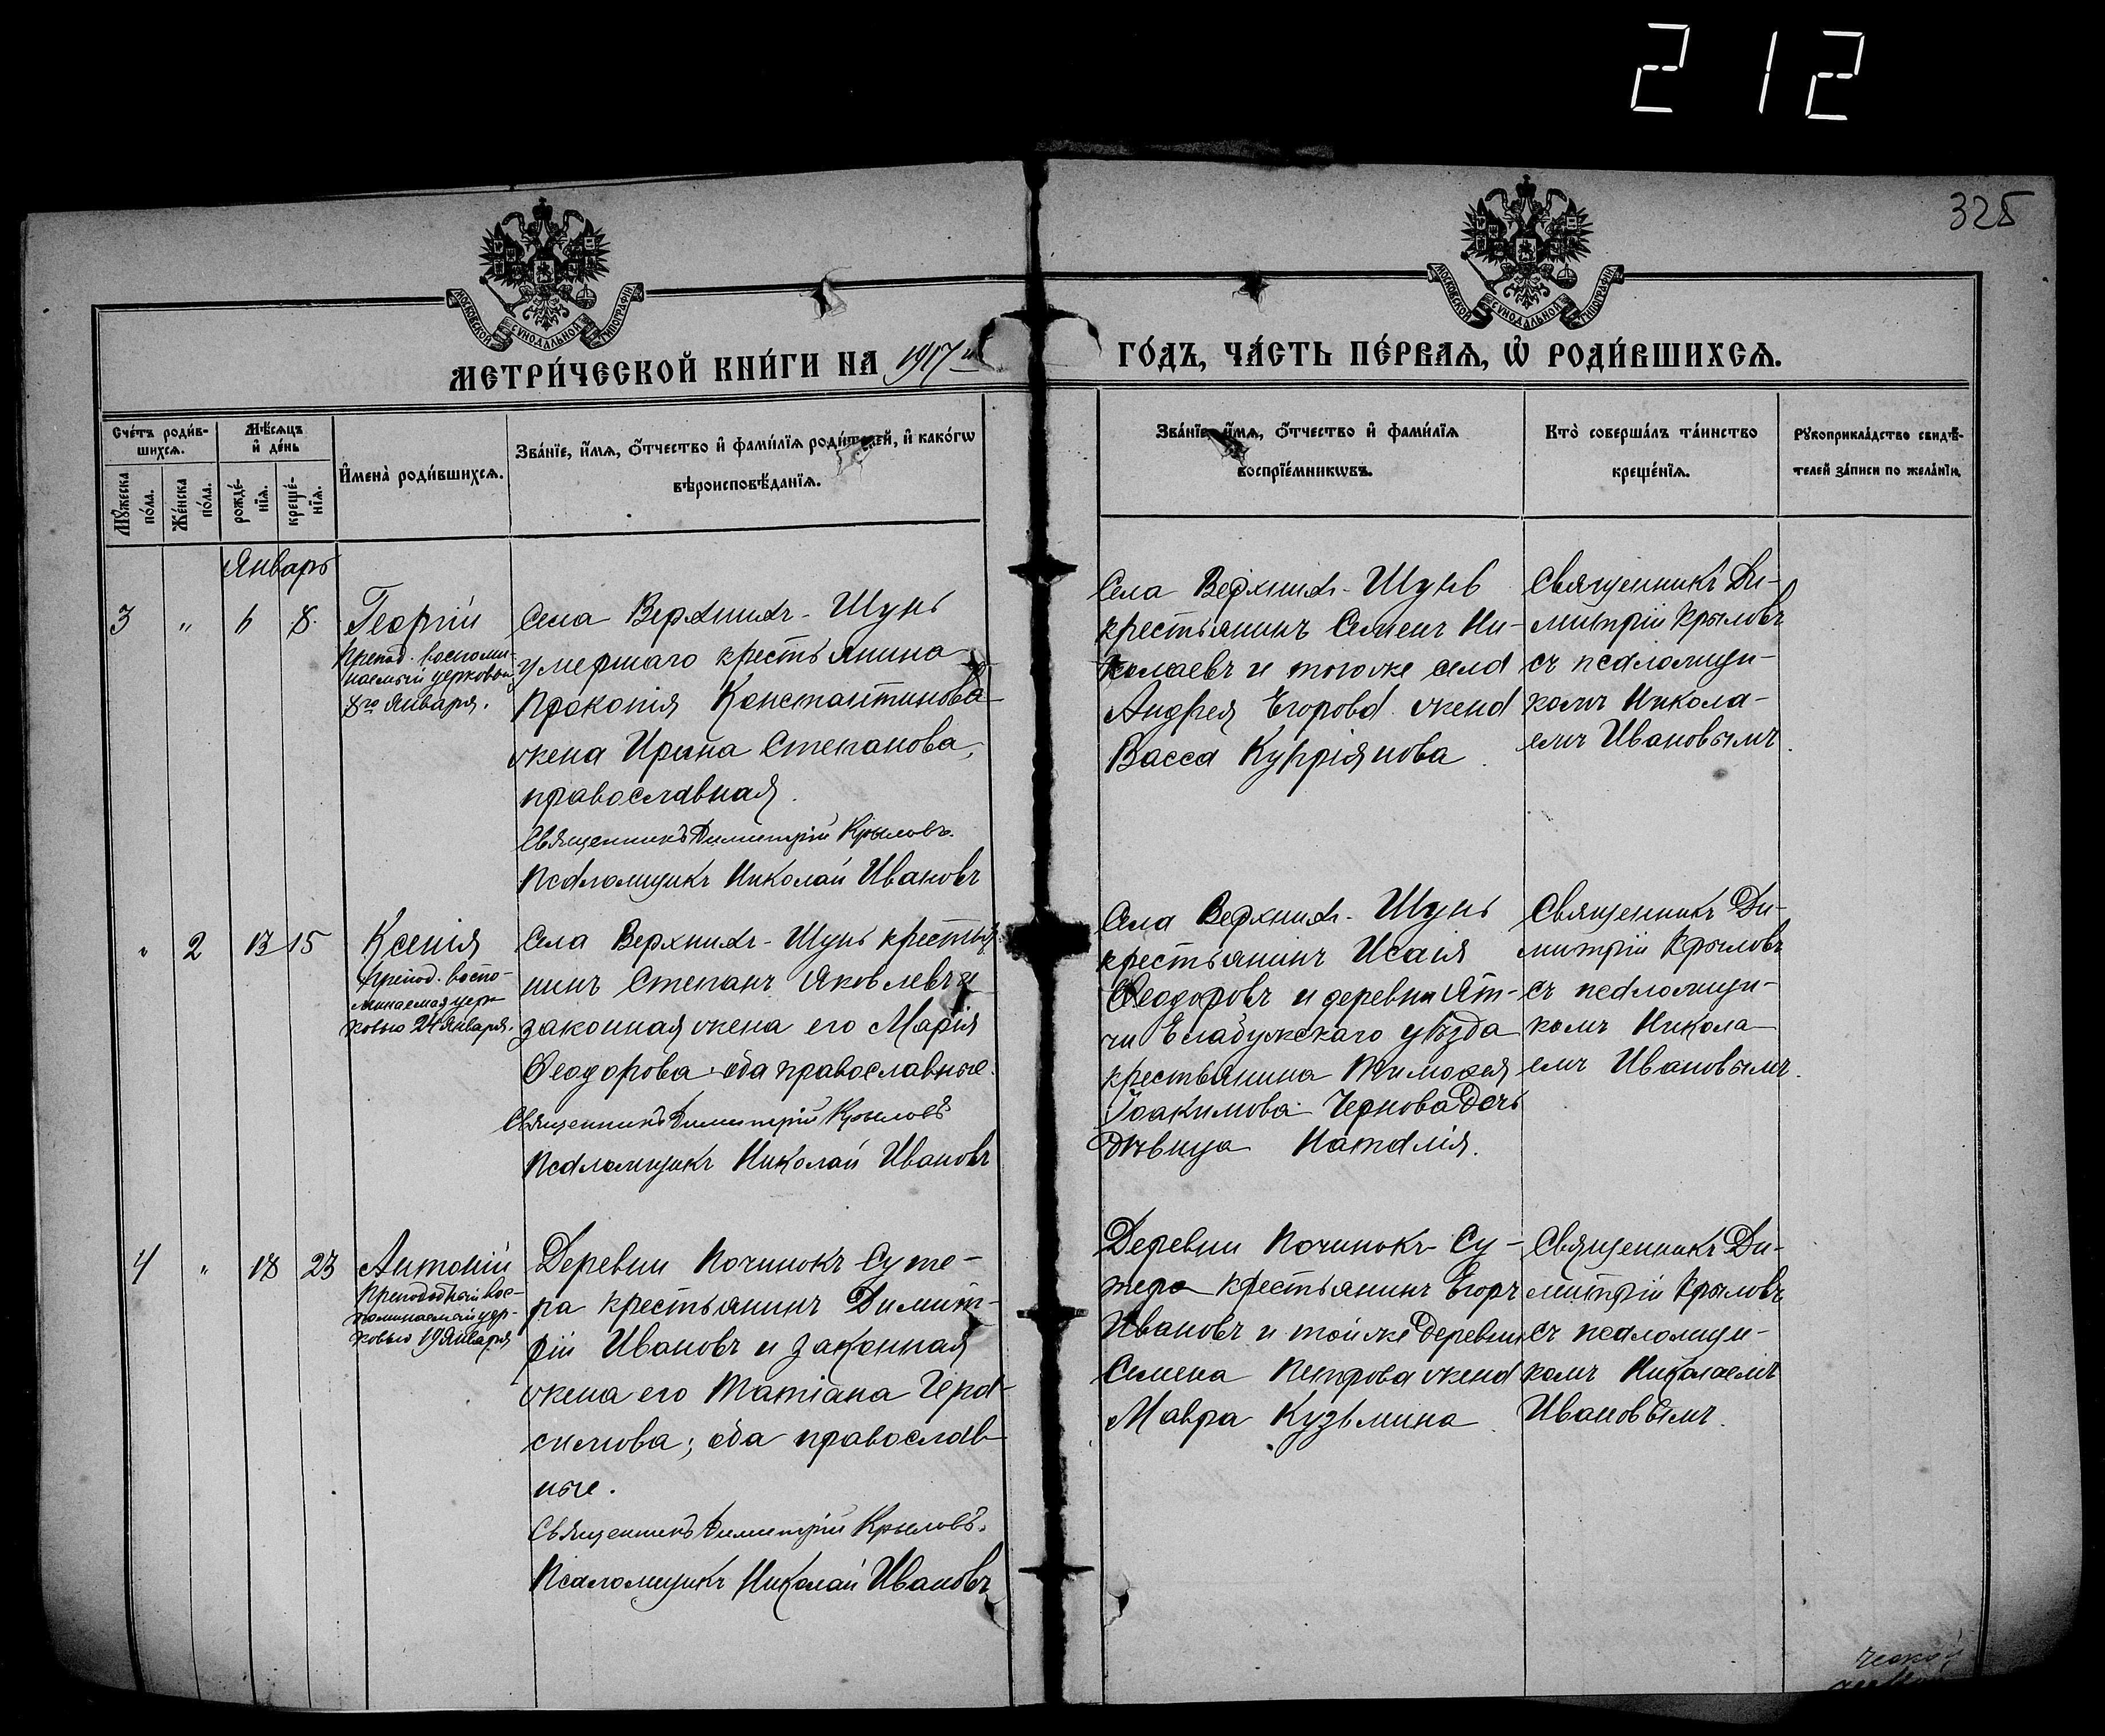 212
325
МОСКОВСКОЙ СѴНОДАЛЬНОЙ ТИПОГРАФІИ
МОСКОВСКОЙ СѴНОДАЛЬНОЙ ТИПОГРАФІИ
МЕТРИ́ЧЕСКОЙ КНИ́ГИ НА 1917й
ГО́ДЪ, ЧА́СТЬ ПЕ́РВАѦ, Ѡ҆ РОДИ́ВШИХСѦ.
Сче́тъ роди́в-
шихсѧ.
Мѣ́сѧцъ
и҆ де́нь
Мꙋ́жеска
по́ла.
Же́нска
по́ла.
рожде́-
нїѧ.
креще́-
нїѧ.
И҆мена̀ роди́вшихсѧ.
Зва́нїе, и҆́мѧ, ѻ҆́тчество и҆ фами́лїѧ роди́телей, и҆ како́гѡ
вѣроисповѣ́данїѧ.
Зва́нїе, и҆́мѧ, ѻ҆́тчество и҆ фами́лїѧ
воспрїе́мникѡвъ.
Кто̀ соверша́лъ та́инство
креще́нїѧ.
Рꙋкоприкла́дство свидѣ́-
телей за́писи по жела́нїю.
Январь
3 " 6 8.
Георгій
Препод. воспоми-
наемый церковью
8го Января.
Села Верхнихъ-Шунь
умершаго крестьянина
Прокопія Константинова
жена Ирина Степанова,
православная.
Священникъ Димитрій Крыловъ.
Псаломщикъ Николай Ивановъ
Села Верхнихъ-Шунь
крестьянинъ Семенъ Ни-
колаевъ и тогоже села
Андрея Егорова жена
Васса Купріянова.
Священникъ Ди-
митрій Крыловъ
съ псаломщи-
комъ Никола-
емъ Ивановымъ.
" 2 13 15
Ксенія
Препод. воспо-
минаемая цер-
ковью 24 Января.
Села Верхнихъ-Шунь крестья-
нинъ Степанъ Яковлевъ и
законная жена его Марія
Ѳеодорова; оба православные.
Священникъ Димитрій Крыловъ
Псаломщикъ Николай Ивановъ
Села Верхнихъ-Шунь
крестьянинъ Исаія
Ѳеодоровъ и деревни Ят-
чи Елабужскаго уѣзда
крестьянина Тимоѳея
Іоакимова Чернова дочь
дѣвица Наталія.
Священникъ Ди-
митрій Крыловъ
съ псаломщи-
комъ Никола-
емъ Ивановымъ.
4 " 18 23
Антоній
Преподобный вос-
поминаемый цер-
ковью 19 Января
Деревни Починокъ Суте-
ра крестьянинъ Димит-
рій Ивановъ и законная
жена его Татіана Гера-
симова; оба православ-
ные.
Священникъ Димитрій Крыловъ.
Псаломщикъ Николай Ивановъ
Деревни Починокъ Су-
тера крестьянинъ Егоръ
Ивановъ и тойже деревни
Семена Петрова жена
Мавра Кузьмина.
Священникъ Ди-
митрій Крыловъ
съ псаломщи-
комъ Николаемъ
Ивановымъ.
ческой